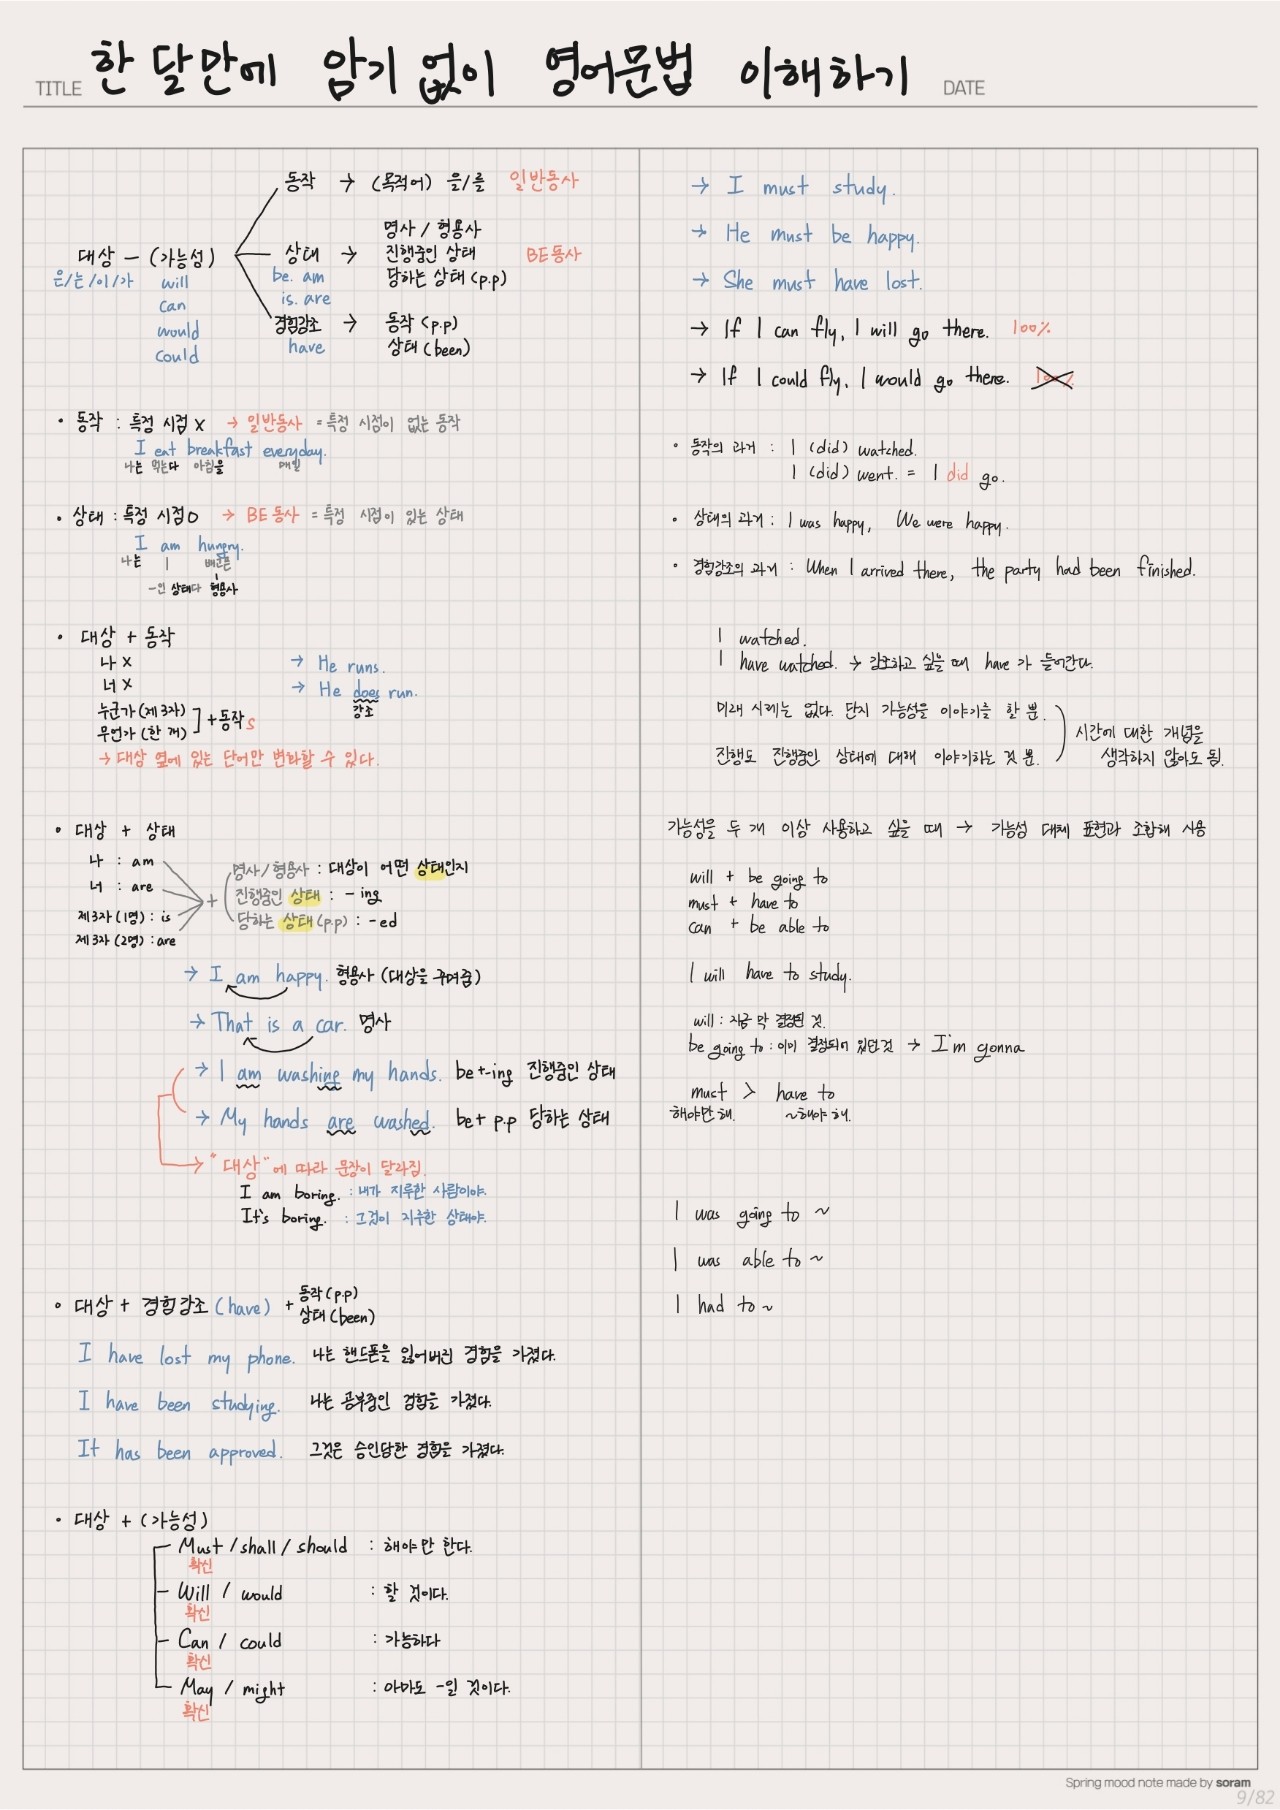 TITLE 한 달 만에 암기 없이 영어문법 이해하기 DATE
동작 → (목적어) 을/를 일반동사
대상 - (가능성)
은/는/이/가
will
can
would
could
상태 →
be. am
is. are
명사 / 형용사
진행중인 상태
당하는 상태 (p.p)
BE동사
경험강조 →
have
동작 (p.p)
상태 (been)
• 동작 : 특정 시점 X → 일반동사 = 특정 시점이 없는 동작
I eat breakfast everyday.
나는 먹는다 아침을 매일
• 상태 : 특정 시점 O → BE 동사 = 특정 시점이 있는 상태
I am hungry.
나는 배고픈
-인 상태다 형용사
• 대상 + 동작
나 X
너 X
누군가 (제 3자)
무언가 (한 개)
+ 동작s
→ He runs.
→ He does run.
강조
→ 대상 옆에 있는 단어만 변화할 수 있다.
• 대상 + 상태
나 : am
너 : are
제 3자 (1명) : is
제 3자 (2명) : are
+
명사 / 형용사 : 대상이 어떤 상태인지
진행중인 상태 : - ing
당하는 상태 (p.p) : -ed
→ I am happy. 형용사 (대상을 꾸며줌)
→ That is a car. 명사
→ I am washing my hands. be+-ing 진행중인 상태
→ My hands are washed. be+ p.p 당하는 상태
→ "대상"에 따라 문장이 달라짐.
I am boring. : 내가 지루한 사람이야.
It's boring. : 그것이 지루한 상태야.
• 대상 + 경험강조 (have) +
동작 (p.p)
상태 (been)
I have lost my phone. 나는 핸드폰을 잃어버린 경험을 가졌다.
I have been studying. 나는 공부중인 경험을 가졌다.
It has been approved. 그것은 승인당한 경험을 가졌다.
• 대상 + (가능성)
Must / shall / should : 해야만 한다.
확신
Will / would : 할 것이다.
확신
Can / could : 가능하다
확신
May / might : 아마도 -일 것이다.
확신
→ I must study.
→ He must be happy.
→ She must have lost.
→ If I can fly, I will go there. 100%
→ If I could fly, I would go there. 100%
• 동작의 과거 : I (did) watched.
I (did) went. = I did go.
• 상태의 과거 : I was happy, We were happy.
• 경험강조의 과거 : When I arrived there, the party had been finished.
I watched.
I have watched. → 강조하고 싶을 때 have 가 들어간다.
미래 시제는 없다. 단지 가능성을 이야기를 할 뿐.
진행도 진행중인 상태에 대해 이야기하는 것 뿐.
시간에 대한 개념을
생각하지 않아도 됨.
가능성을 두 개 이상 사용하고 싶을 때 → 가능성 대체 표현과 조합해 사용
will + be going to
must + have to
can + be able to
I will have to study.
will : 지금 막 결정된 것.
be going to : 이미 결정되어 있던 것 → I'm gonna
must > have to
해야만 해. ~해야 해.
I was going to ~
I was able to ~
I had to ~
Spring mood note made by soram
9/82